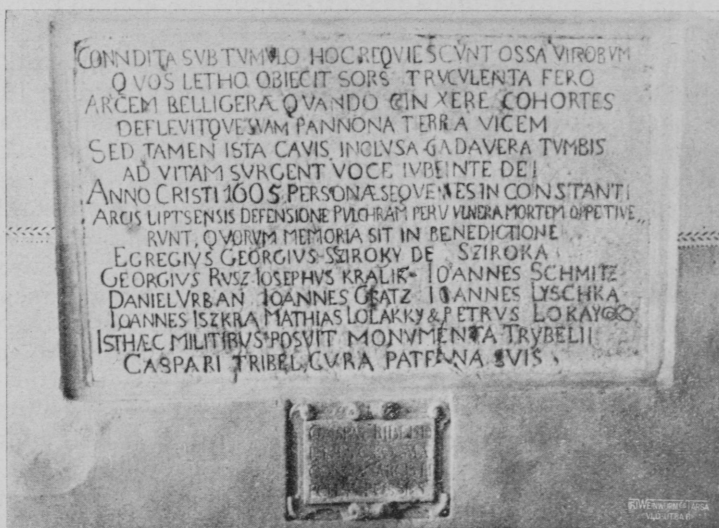 CONNDITA SVB TVMVLO HOC REQVIESCVNT OSSA VIRORVM
QVOS LETHO OBIECIT SORS TRVCVLENTA FERO
ARCEM BELLIGERÆ QVANDO CINXERE COHORTES
DEFLEVITQVE SVAM PANNONA TERRA VICEM
SED TAMEN ISTA CAVIS INCLVSA CADAVERA TVMBIS
AD VITAM SVRGENT VOCE IVBEINTE DEI
ANNO CRISTI 1605 PERSONÆ SEQVENES IN CONSTANTI
ARCIS LIPTSENSIS DEFENSIONE PVLCHRAM PER VVLNERA MORTEM OPPETIVE
RVNT, QVORVM MEMORIA SIT IN BENEDICTIONE
EGREGIVS GEORGIVS SZIROKY DE SZIROKA
GEORGIVS RVSZ IOSEPHVS KRALIK IOANNES SCHMITZ
DANIEL VRBAN IOANNES GLATZ IOANNES LYSCHKA
IOANNES ISZKRA MATHIAS LOLAKKY & PETRVS LOKAY
ISTHÆC MILITIBVS POSVIT MONVMENTA TRYBELII
CASPARI TRIBEL CVRA SVIS